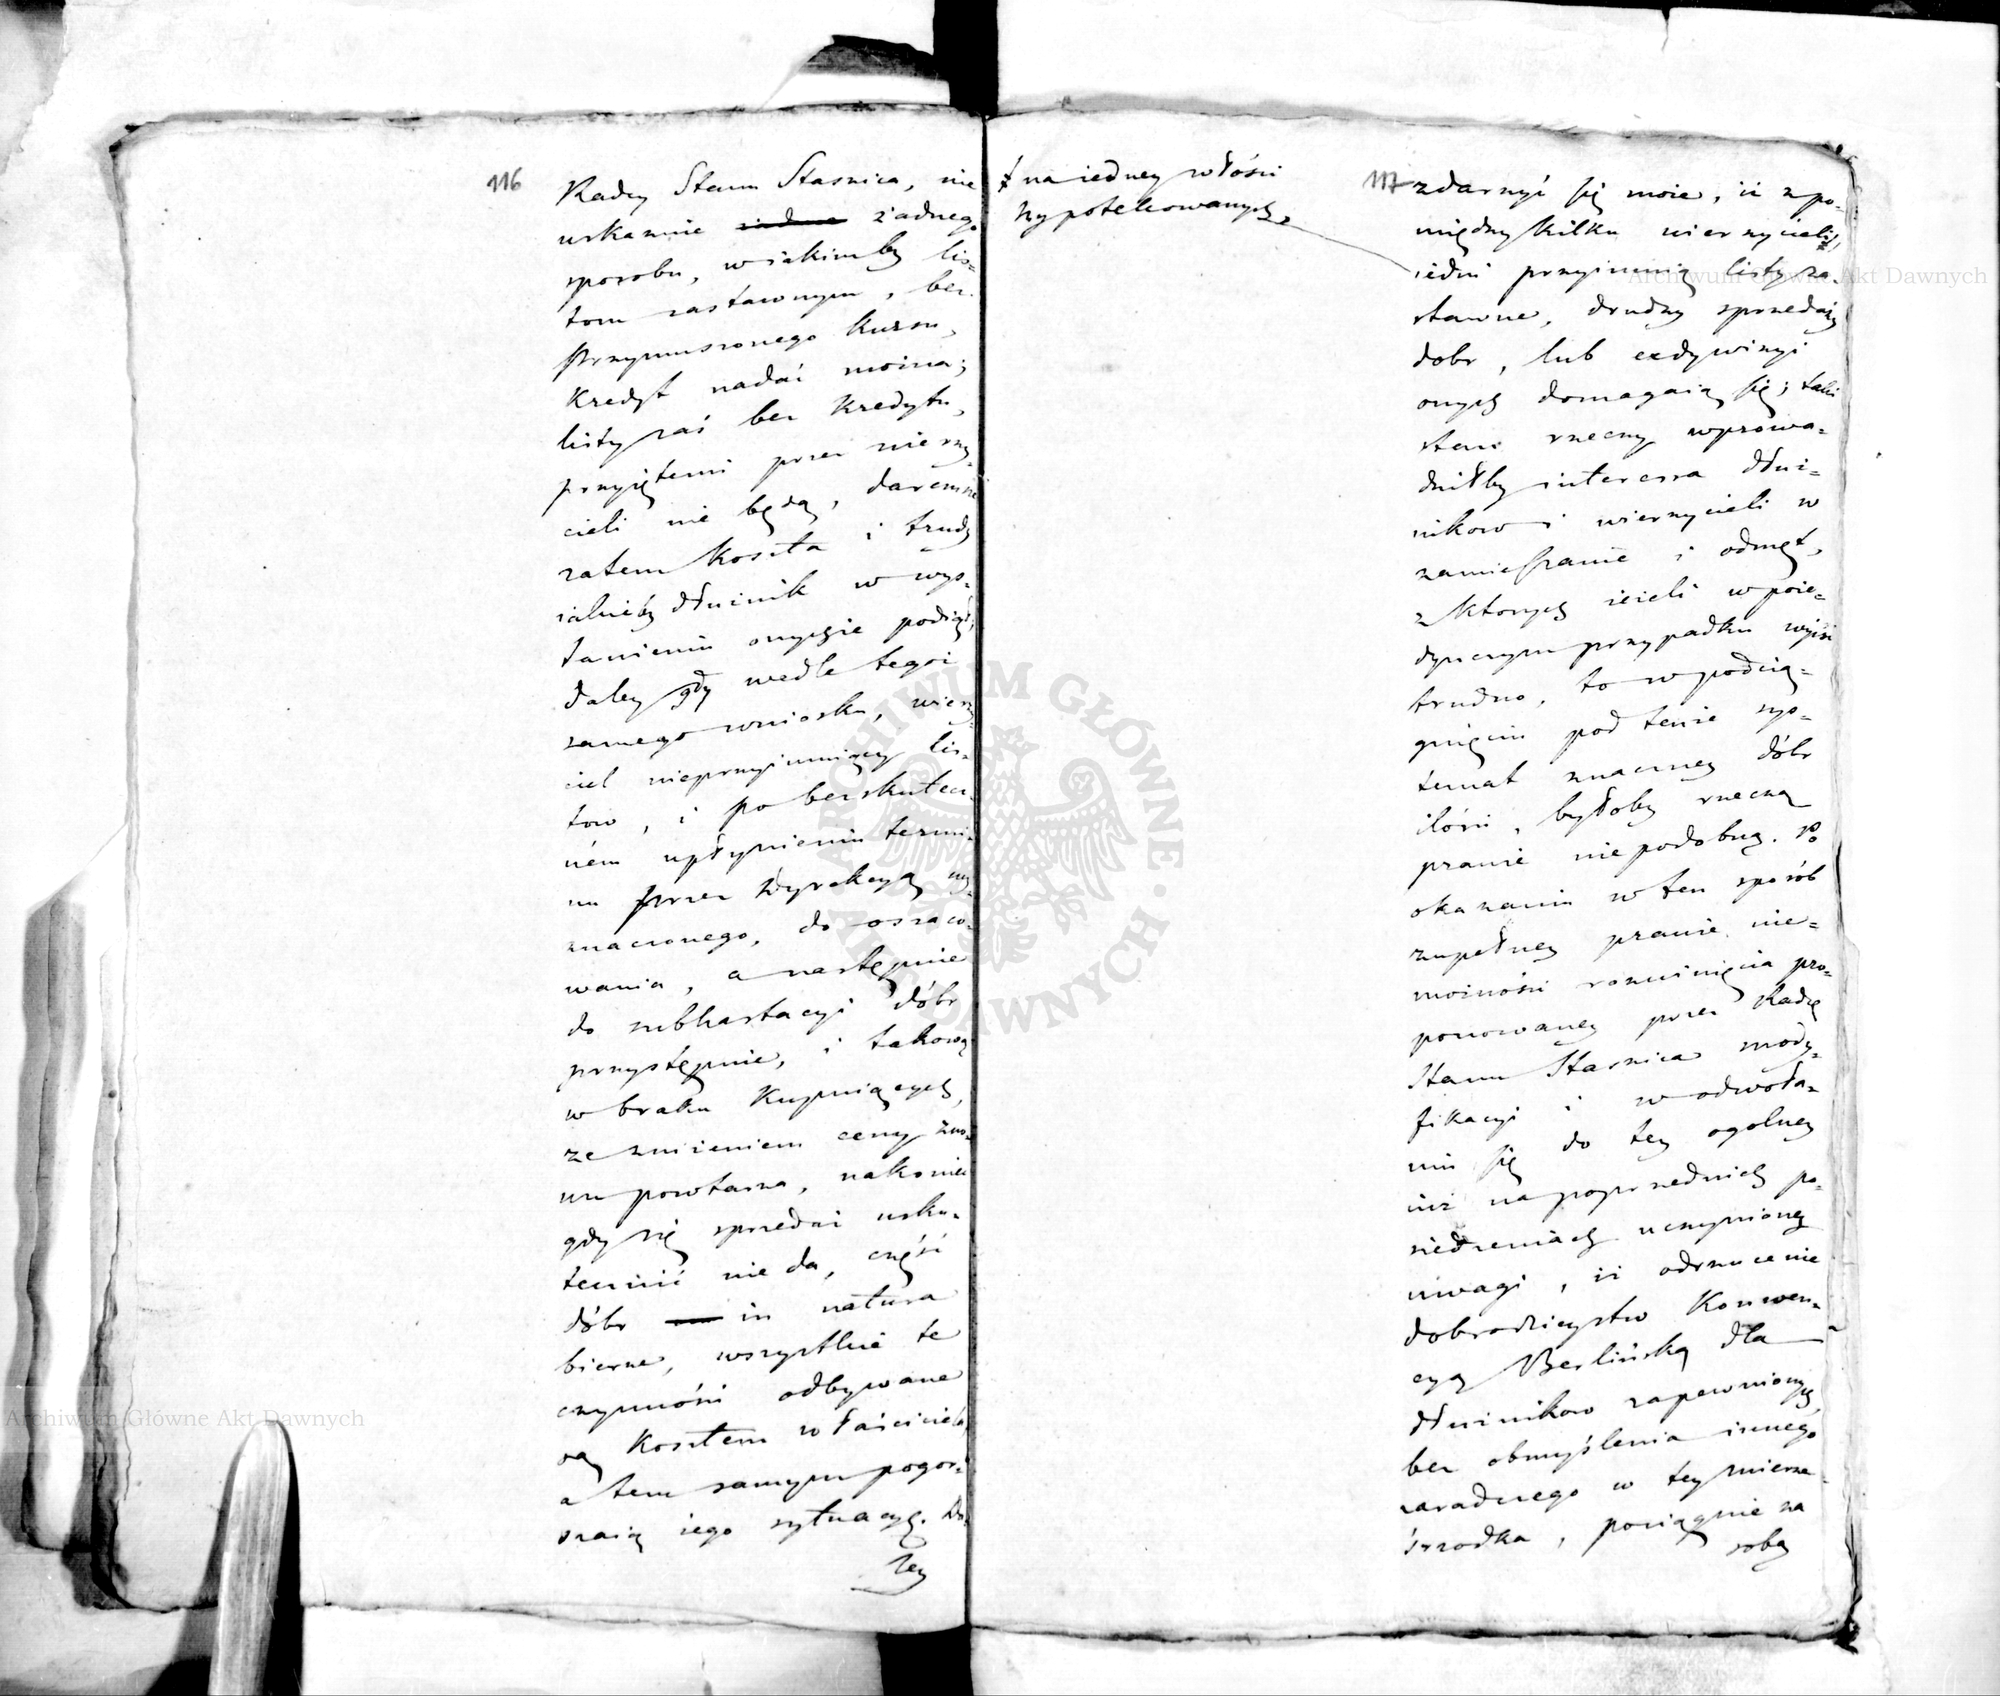 116
Radcy Stanu Staszica, nie
wskazanie żadne żadnego
sposobu, w iakimby lis=
tom zastawnym, bez
przymuszonego kursu,
kredyt nadać można;
listy zaś bez kredytu,
przyiętemi przez wierzy=
cieli nie będą, daremne
zatem koszta i trudy
dłużnik w wys=
tawieniu onychże podiął,
daley gdy wedle tegoż
samego wniosku, wierzy=
ciel nieprzyimuiący lis=
tow, i po bezskutecz=
ném upłynieniu termi=
nu przez Dyrekcyą wy=
znaczonego, do oszaco=
wania, a następnie
do subhastacyi dóbr
przystępuie, i takową
w braku kupuiących,
ze zniżeniem ceny zno=
wu powtarza, nakoniec
gdy się sprzedaż usku=
tecznić nie da, część
dóbr in natura
bierze, wszystkie te
czynności odbywane
są kosztem właściciela,
a tem samym pogor=
szaią iego sytuacyą. Da=
ley
‡ na iedney włości
hypotekowanych,
117
zdarzyć się może, iż z po=
między kilku wierzycieli ‡,
iedni przyimuią listy za=
stawne, drudzy sprzedaży
dobr, lub exdywizyi
onych domagaią się; taki
stan rzeczy wprowa=
dziłby interessa dłuż=
nikow i wierzycieli w
zamieszanie i odmęt,
z ktorych ieżeli w poie=
dynczym przypadku wyiść
trudno, to w podcią=
gnięciu pod tenże sys=
temat znaczney dóbr
ilości, byłoby rzeczą
prawie niepodobną. Po
okazaniu w ten sposób
zupełney prawie nie=
możności rozwinięcia pro=
ponowaney przez Radcę
Stanu Staszica mody=
fikacyi i w odwoła=
niu się do tey ogolney
iuż na poprzednich po=
siedzeniach uczynioney
uwagi, iż odrzucenie
dobrodzieystw Konwen=
cyą Berlińską dla
dłużnikow zapewnionych,
bez obmyślenia innego
zaradczego w tey mierze
środka, pociągnie za
sobą
Archiwum Główne Akt Dawnych
Archiwum Główne Akt Dawnych
ARCHIWUM GŁÓWNE AKT DAWNYCH